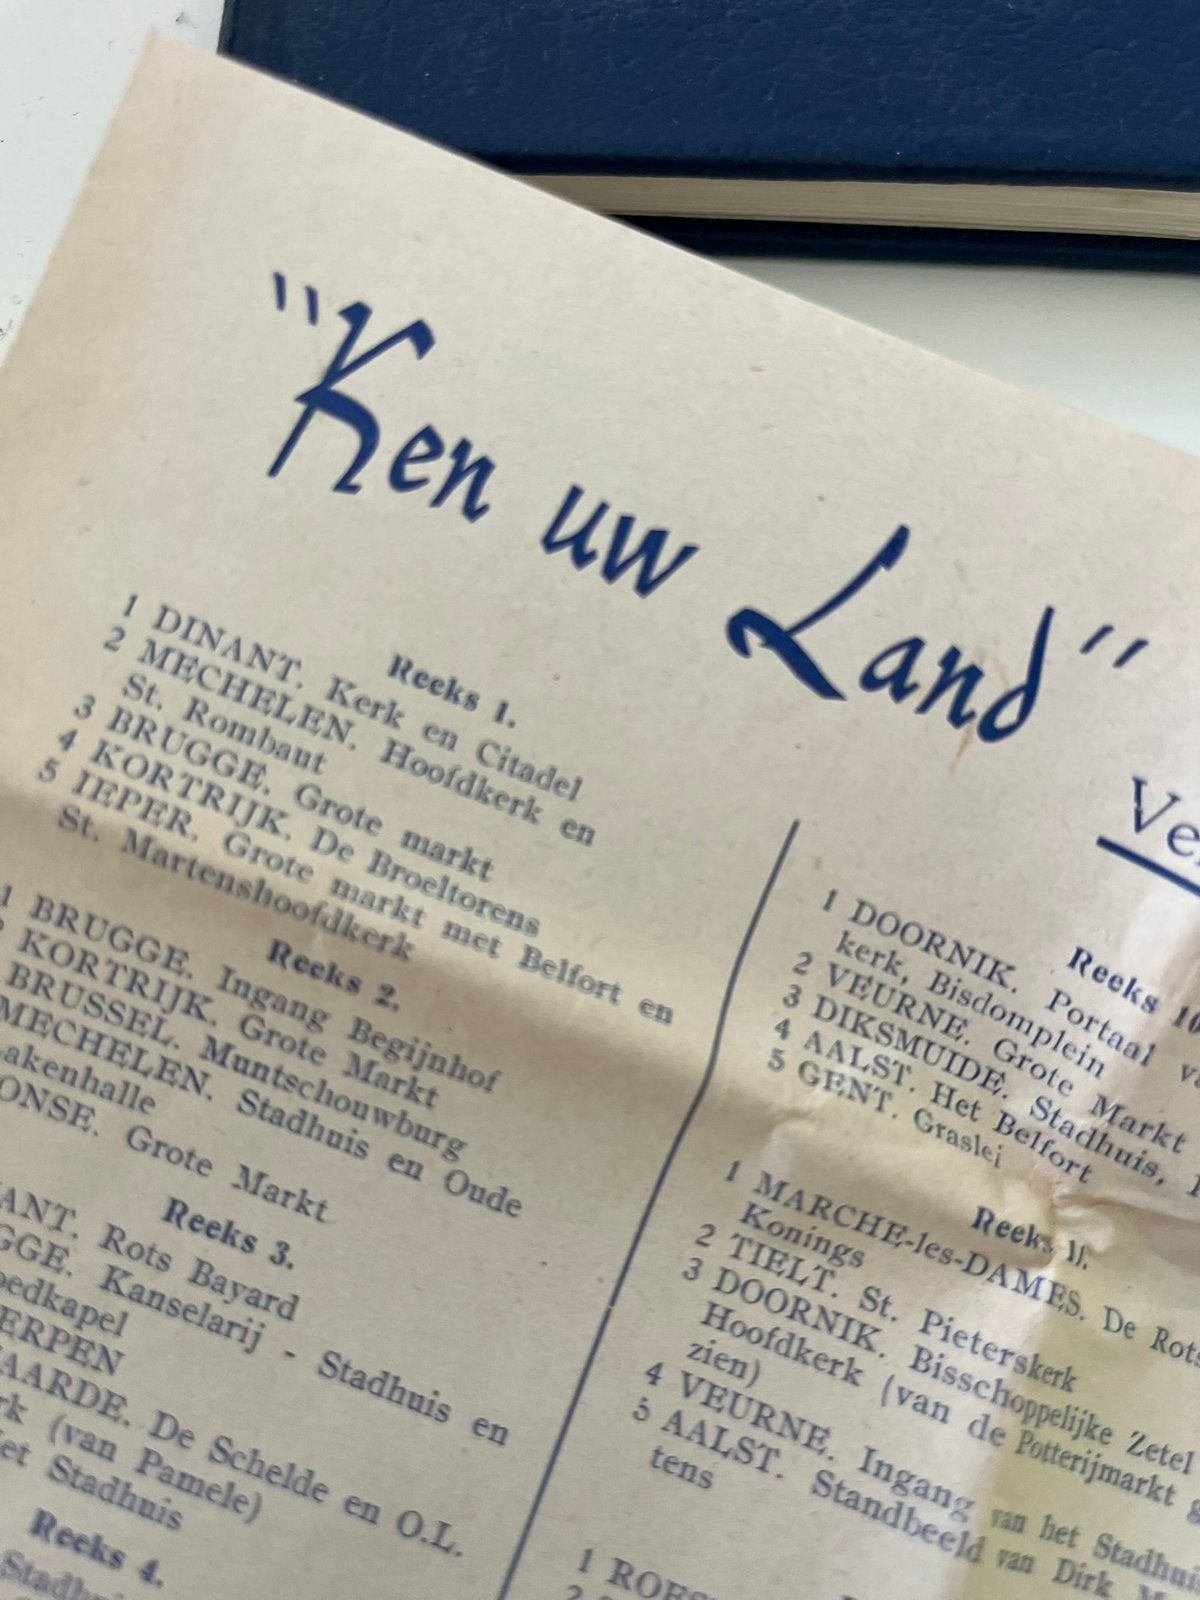 "Ken uw Land"
Reeks 1.
1 DINANT. Kerk en Citadel
2 MECHELEN. Hoofdkerk en
St. Rombaut
3 BRUGGE. Grote markt
4 KORTRIJK. De Broeltorens
5 IEPER. Grote markt met Belfort en
St. Martenshoofdkerk
Reeks 2.
1 BRUGGE. Ingang Begijnhof
KORTRIJK. Grote Markt
BRUSSEL. Muntschouwburg
MECHELEN. Stadhuis en Oude
akenhalle
ONSE. Grote Markt
Reeks 3.
ANT. Rots Bayard
GGE. Kanselarij - Stadhuis en
oedkapel
ERPEN
AARDE. De Schelde en O.L.
rk (van Pamele)
et Stadhuis
Reeks 4.
Stadhu
Ve
Reeks 10
1 DOORNIK. Portaal va
kerk, Bisdomplein
2 VEURNE. Grote Markt
3 DIKSMUIDE. Stadhuis,
4 AALST. Het Belfort
5 GENT. Graslei
Reeks 11.
1 MARCHE-les-DAMES. De Rots
Konings
2 TIELT. St. Pieterskerk
3 DOORNIK. Bisschoppelijke Zetel
Hoofdkerk (van de Potterijmarkt g
zien)
4 VEURNE. Ingang van het Stadhui
5 AALST. Standbeeld van Dirk M
tens
1 ROES